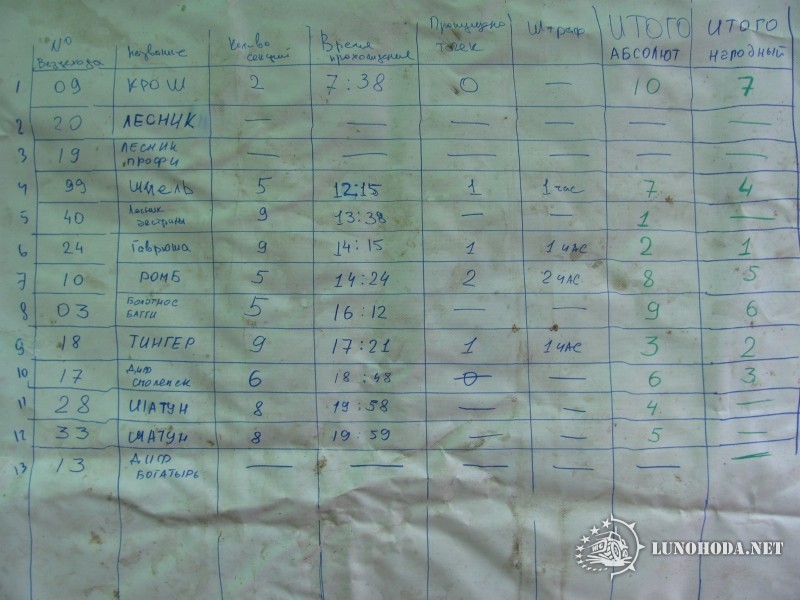 № Вездехода название Кол-во секций Время прохождения Пропущено точек Штраф ИТОГО АБСОЛЮТ ИТОГО народный
1 09 КРОШ 2 7:38 0 — 10 7
2 20 ЛЕСНИК — — — — — —
3 19 ЛЕСНИК ПРОФИ — — — — — —
4 99 ШМЕЛЬ 5 12:15 1 1 час 7 4
5 40 Лесник экстрим 9 13:38 — — 1 —
6 24 Гаврюша 9 14:15 1 1 ЧАС 2 1
7 10 РОМБ 5 14:24 2 2 ЧАС 8 5
8 03 БОЛОТНОЕ БАГГИ 5 16:12 — — 9 6
9 18 ТИНГЕР 9 17:21 1 1 ЧАС 3 2
10 17 ДИФ СМОЛЕНСК 6 18:48 0 — 6 3
11 28 ШАТУН 8 19:58 — — 4 —
12 33 ШАТУН 8 19:59 — — 5 —
13 13 ДИФ БОГАТЫРЬ — — — — — —
LUNOHODA.NET